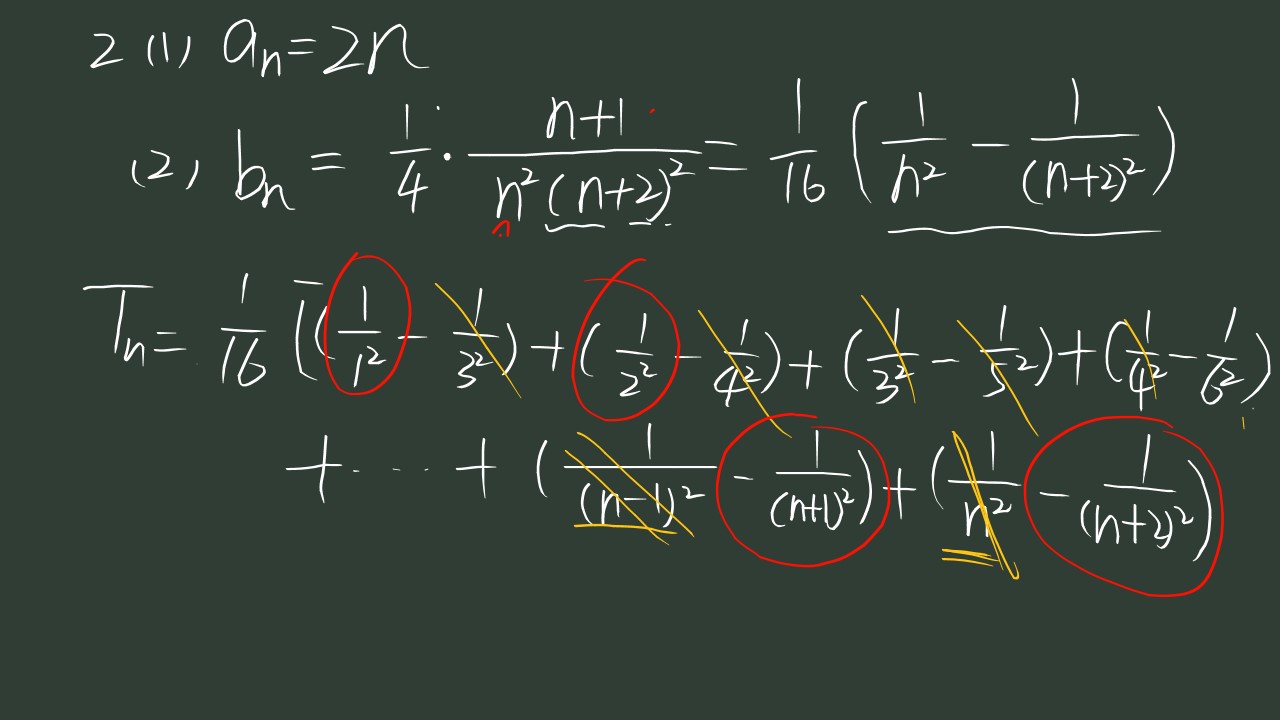 2 (1) aₙ=2n
(2) bₙ = 1/4 · (n+1)/(n²(n+2)²) = 1/16 (1/n² − 1/(n+2)²)
Tₙ= 1/16 [(1/1² − 1/3²)+(1/2² − 1/4²)+(1/3² − 1/5²)+(1/4² − 1/6²)
+ ···· + (1/(n−1)² − 1/(n+1)²)+(1/n² − 1/(n+2)²)